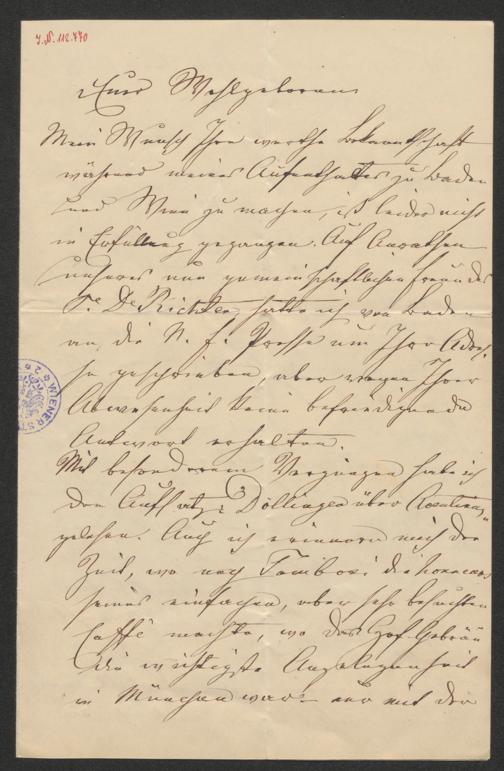 I.N. 112.770
Euer Wohlgeboren
Mein Wunsch Ihre werthe Bekanntschaft
während meines Aufenthaltes zu Baden
und Wien zu machen, ist leider nicht
in Erfüllung gegangen. Auf Anrathen
unseres nun gemeinschaftlichen Freundes
Dr Richter, hatte ich von Baden
an die N. f. Presse um Ihre Adres-
se geschrieben, aber wegen Ihrer
Abwesenheit keine befriedigende
Antwort erhalten.
Mit besonderem Vergnügen habe ich
den Aufsatz: Döllinger über
gelesen. Auch ich erinnere mich der
Zeit, wo noch Tambosi die honneurs
seines einfachen, aber sehr besuchten
Caffé machte, wo das Hof-Gebräu
die wichtigste Angelegenheit
in München war und mit der
WIENER ST